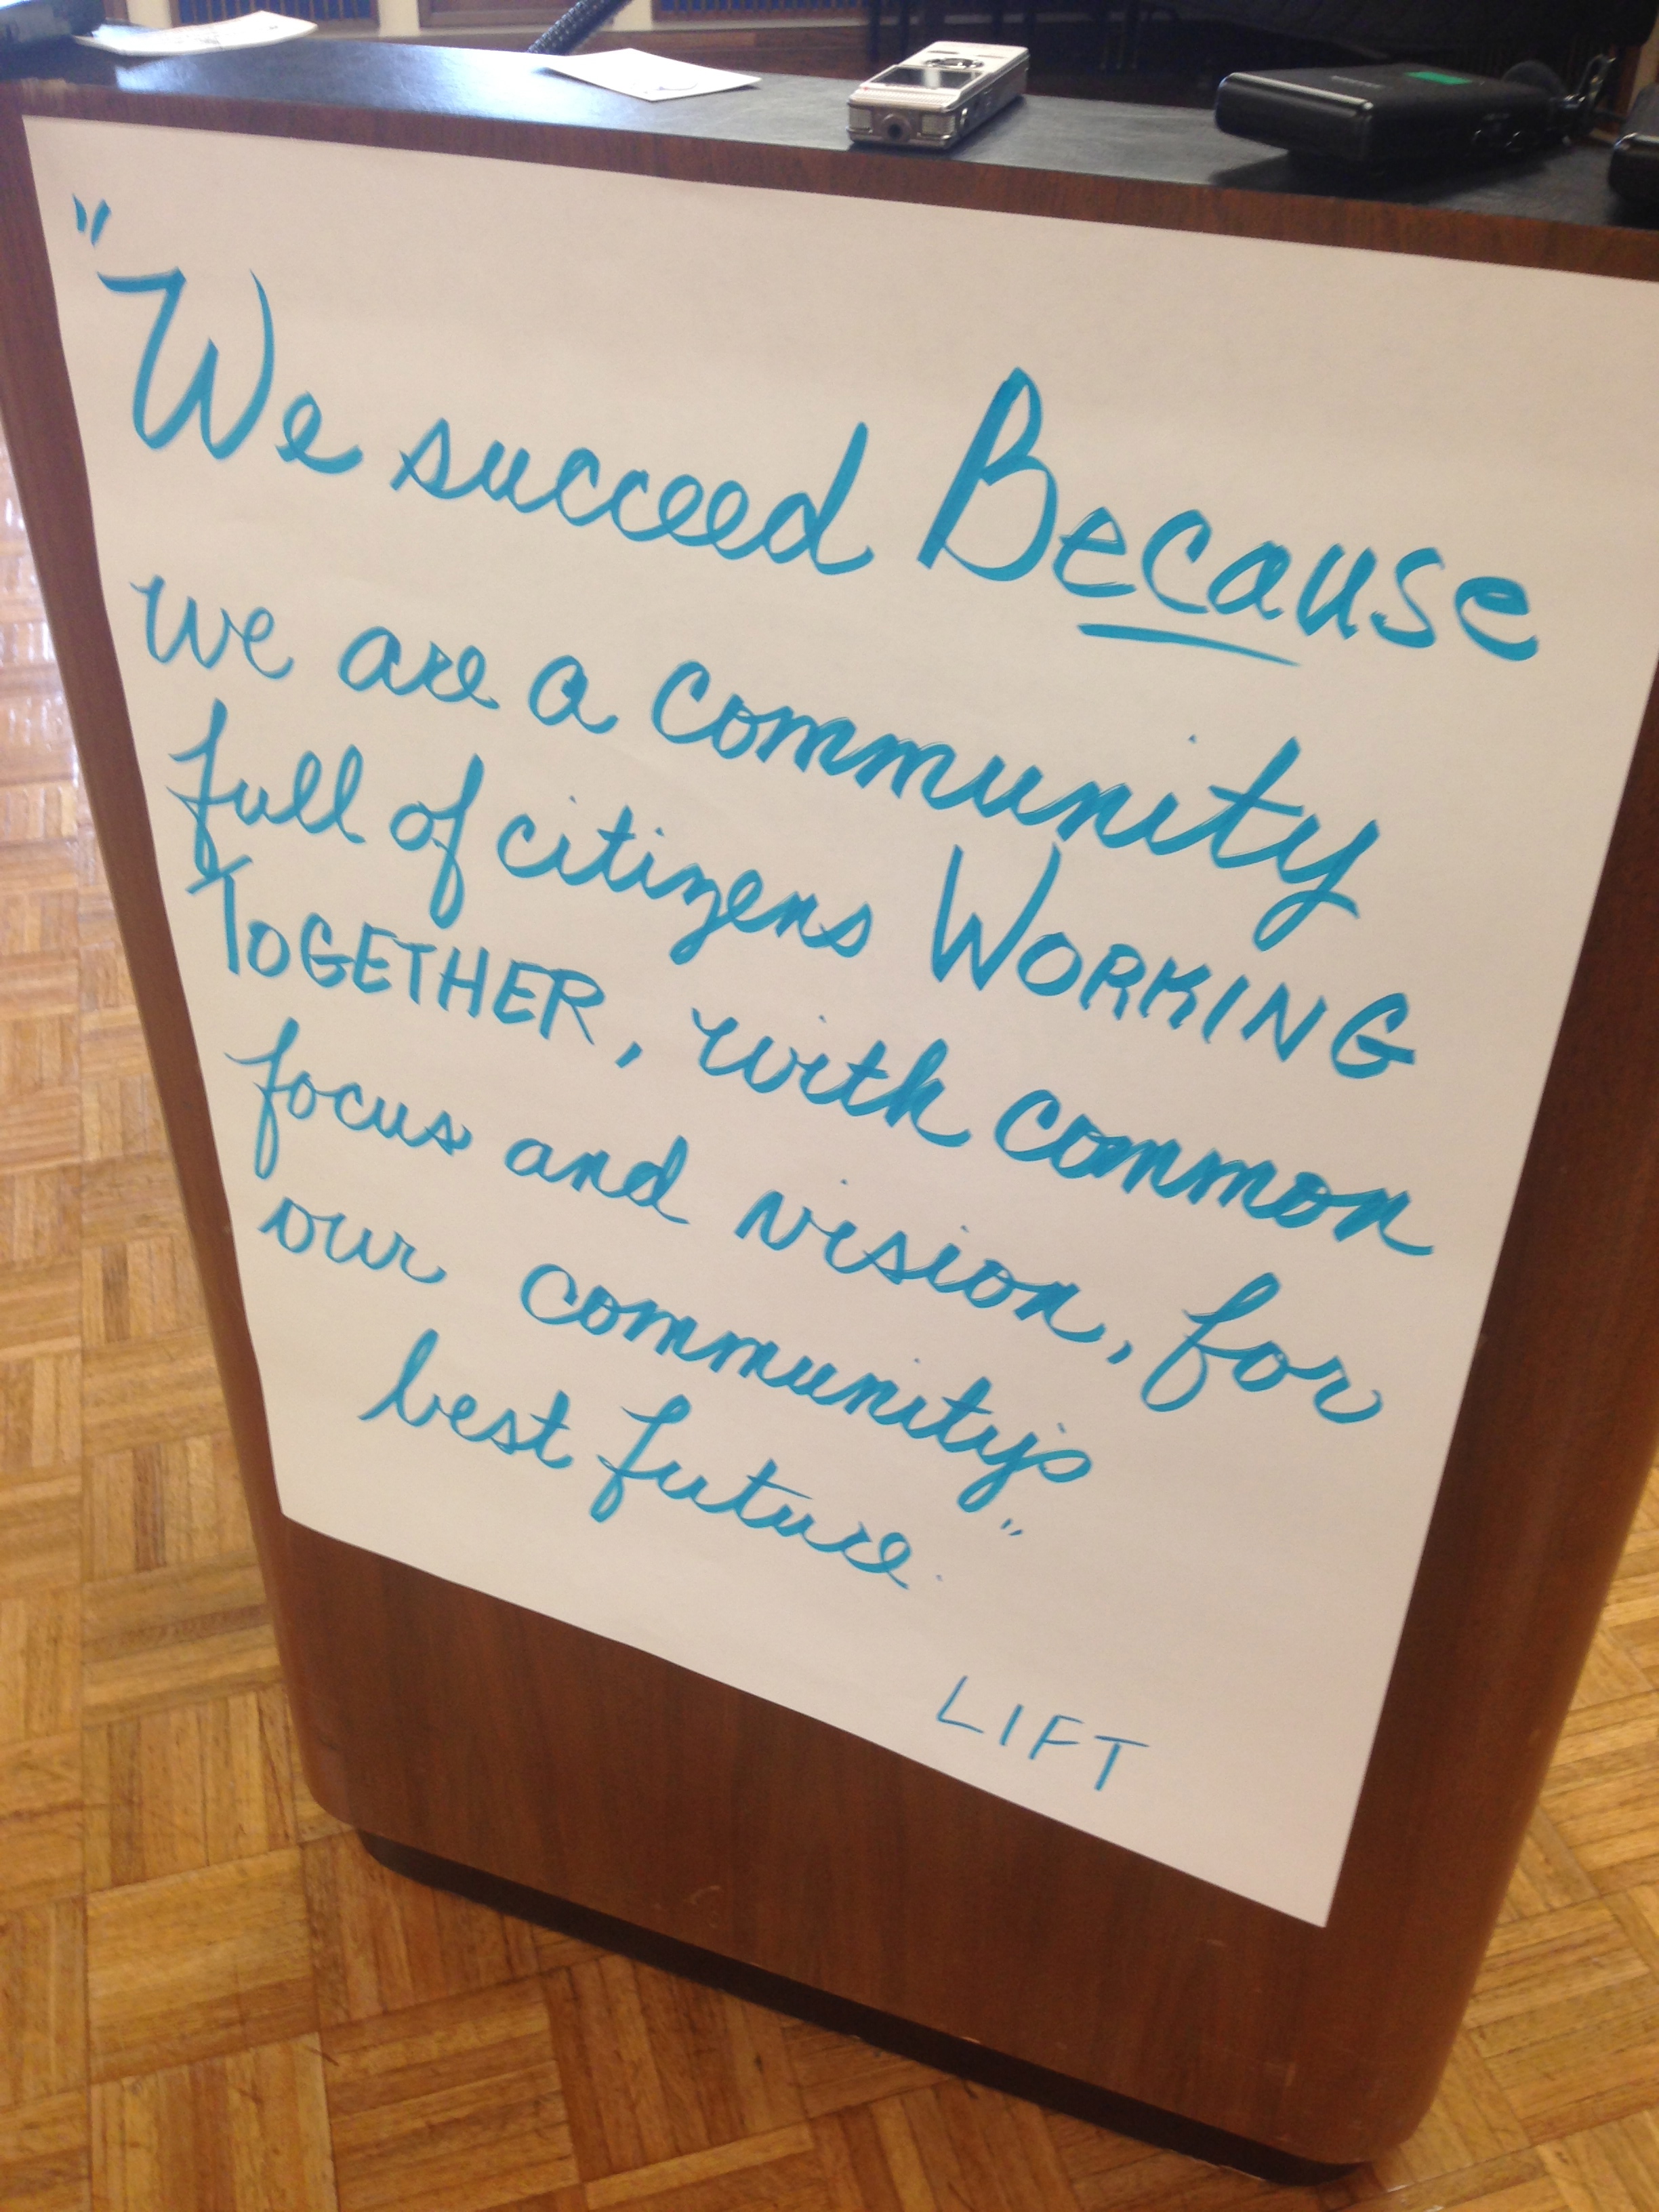 "We succeed Because
we are a community
full of citizens WORKING
TOGETHER, with common
focus and vision, for
our community's
best future."
LIFT